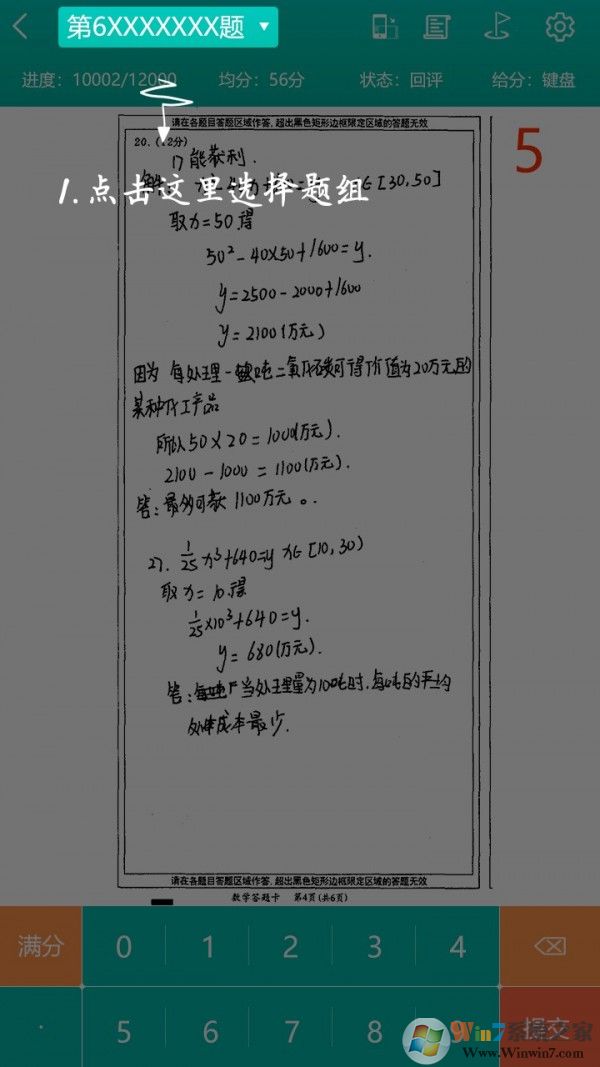 第6XXXXXXX题
进度：10002/12000 均分：56分 状态：回评 给分：键盘
请在各题目答题区域作答，超出黑色矩形边框限定区域的答题无效
20.（12分）
1.点击这里选择题组
5
1) 能获利.
∈[30,50]
取x=50得
50²-40×50+1600=y.
y=2500-2000+1600
y=2100(万元)
因为 每处理一吨二氧化碳可得价值为20万元的
某种化工产品
所以50×20=1000(万元).
2100-1000=1100(万元).
答:最多可获1100万元。
27. 1/25 x³+640=y x∈[10,30)
取x=10得
1/25×10³+640=y.
y=680(万元).
答:当处理量为10吨时,每吨的平均
处理成本最少.
请在各题目答题区域作答，超出黑色矩形边框限定区域的答题无效
数学答题卡 第4页(共6页)
满分 0 1 2 3 4
. 5 6 7 8 9 提交
Win7系统之家
Www.Winwin7.com